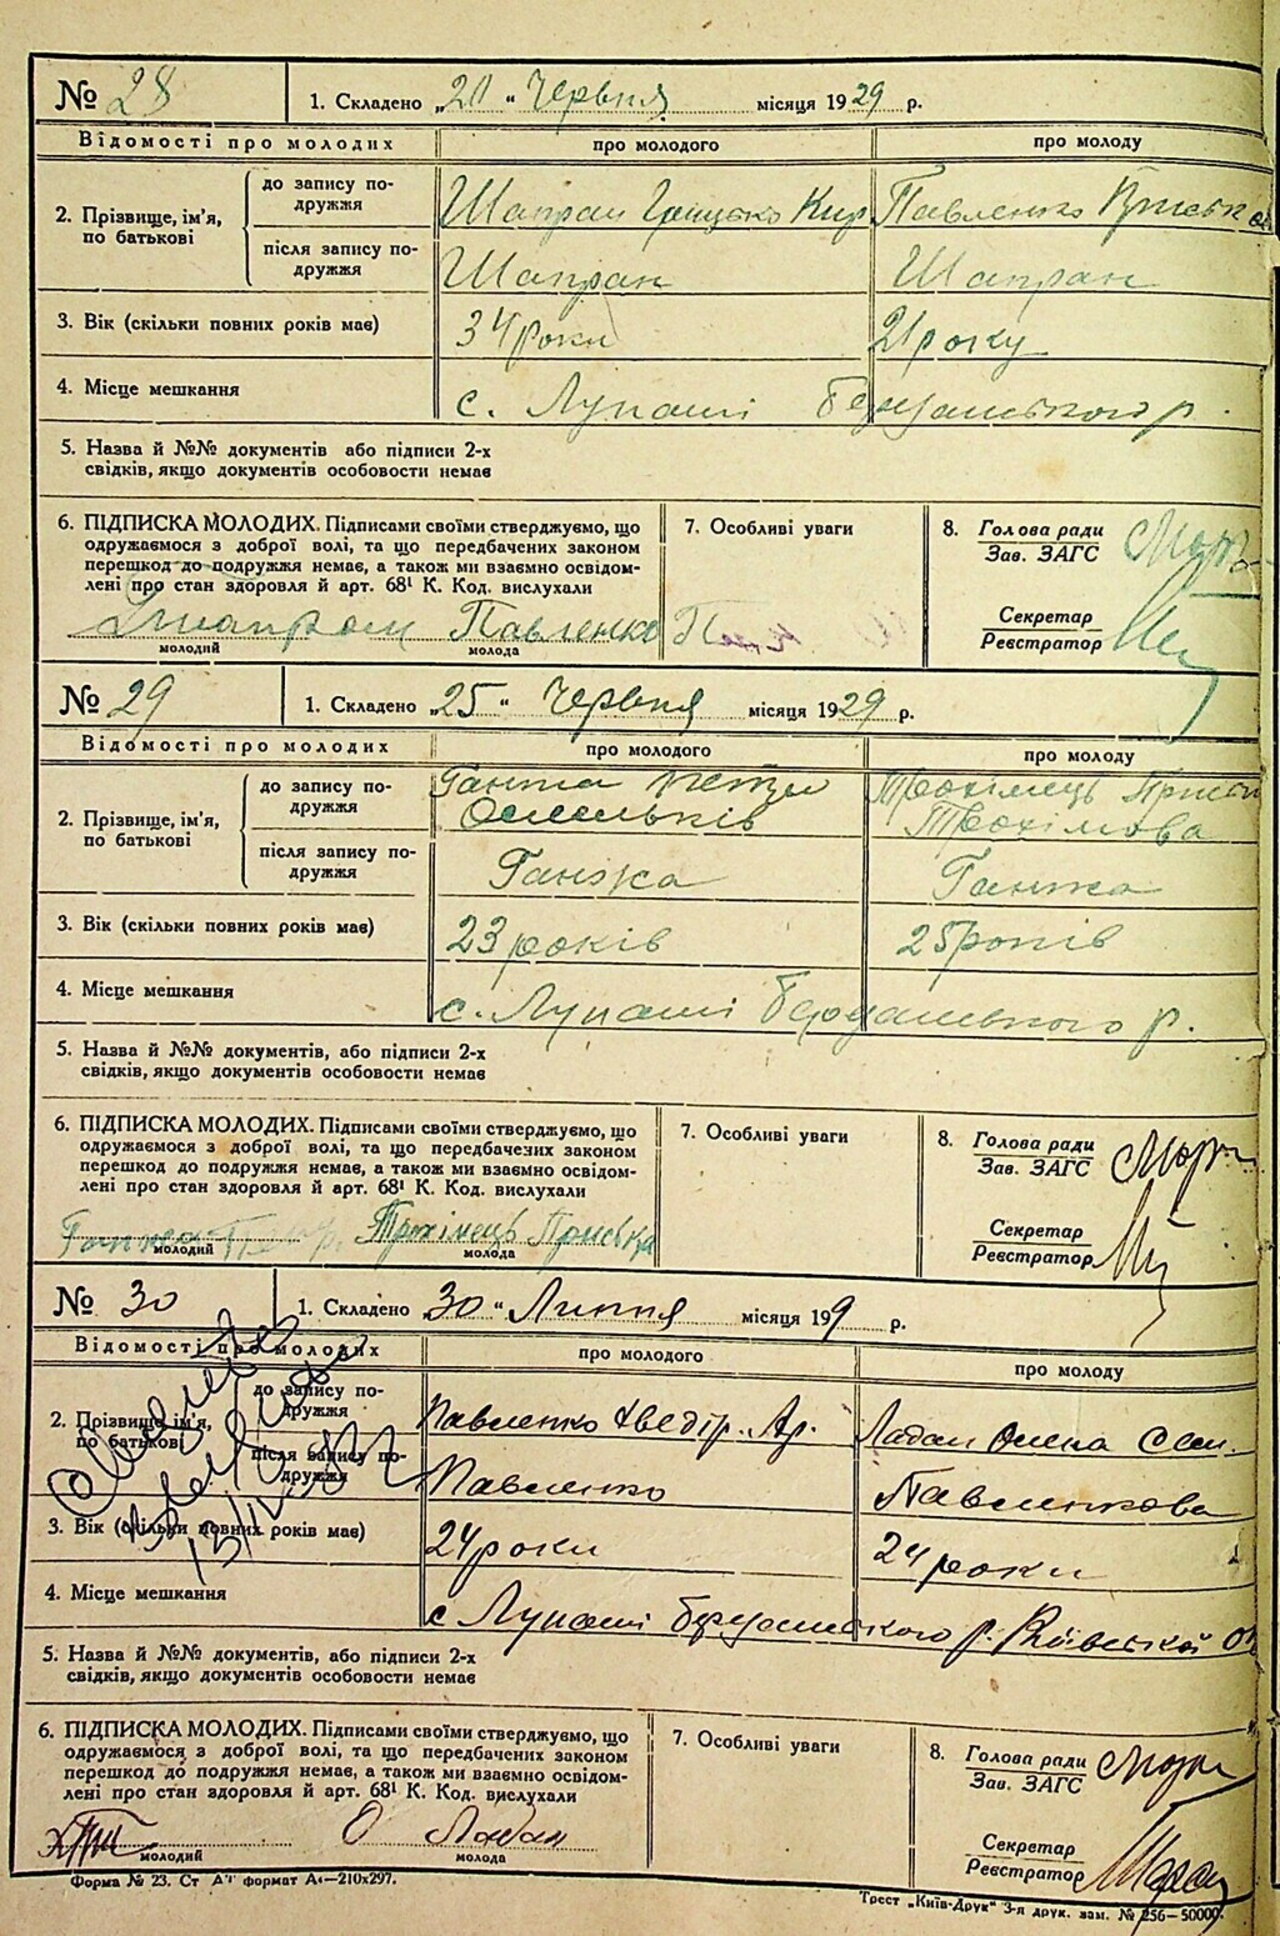 № 28 1. Складено „20“ Червня місяця 1929 р.
Відомості про молодих про молодого про молоду
2. Прізвище, ім'я, по батькові
до запису подружжя Шапран Грицько Кир Павленко Пріська
після запису подружжя Шапран Шапран
3. Вік (скільки повних років має) 34 роки 21 року
4. Місце мешкання с. Лупаші р.
5. Назва й №№ документів або підписи 2-х
свідків, якщо документів особовости немає
6. ПІДПИСКА МОЛОДИХ. Підписами своїми стверджуємо, що
одружаємося з доброї волі, та що передбачених законом
перешкод до подружжя немає, а також ми взаємно освідом-
лені про стан здоровля й арт. 68¹ К. Код. вислухали
7. Особливі уваги
8. Голова ради
Зав. ЗАГС
Секретар
Реєстратор
Шапран Павленко П
молодий молода
№ 29 1. Складено „25“ Червня місяця 1929 р.
Відомості про молодих про молодого про молоду
2. Прізвище, ім'я, по батькові
до запису подружжя Ганжа Петро Трохімець Пріська
Омельків Трохімова
після запису подружжя Ганжа Ганжа
3. Вік (скільки повних років має) 23 років 25 років
4. Місце мешкання с. Лупаші р.
5. Назва й №№ документів, або підписи 2-х
свідків, якщо документів особовости немає
6. ПІДПИСКА МОЛОДИХ. Підписами своїми стверджуємо, що
одружаємося з доброї волі, та що передбачених законом
перешкод до подружжя немає, а також ми взаємно освідом-
лені про стан здоровля й арт. 68¹ К. Код. вислухали
7. Особливі уваги
8. Голова ради
Зав. ЗАГС
Секретар
Реєстратор
Ганжа Трохімець Приська
молодий молода
№ 30 1. Складено „30“ Липня місяця 199 р.
Відомості про молодих про молодого про молоду
2. Прізвище, ім'я, по батькові
до запису подружжя Павленко Хведір. Ладан Олена Сем.
після запису подружжя Павленко Павленкова
3. Вік (скільки повних років має) 24 роки 24 роки
4. Місце мешкання с Лупаші р. Київської
5. Назва й №№ документів, або підписи 2-х
свідків, якщо документів особовости немає
6. ПІДПИСКА МОЛОДИХ. Підписами своїми стверджуємо, що
одружаємося з доброї волі, та що передбачених законом
перешкод до подружжя немає, а також ми взаємно освідом-
лені про стан здоровля й арт. 68¹ К. Код. вислухали
7. Особливі уваги
8. Голова ради
Зав. ЗАГС
Секретар
Реєстратор
О Ладан
молодий молода
Форма № 23. Ст формат А₄—210х297.
Трест „Київ-Друк“ 3-я друк. зам. № 256—50000.